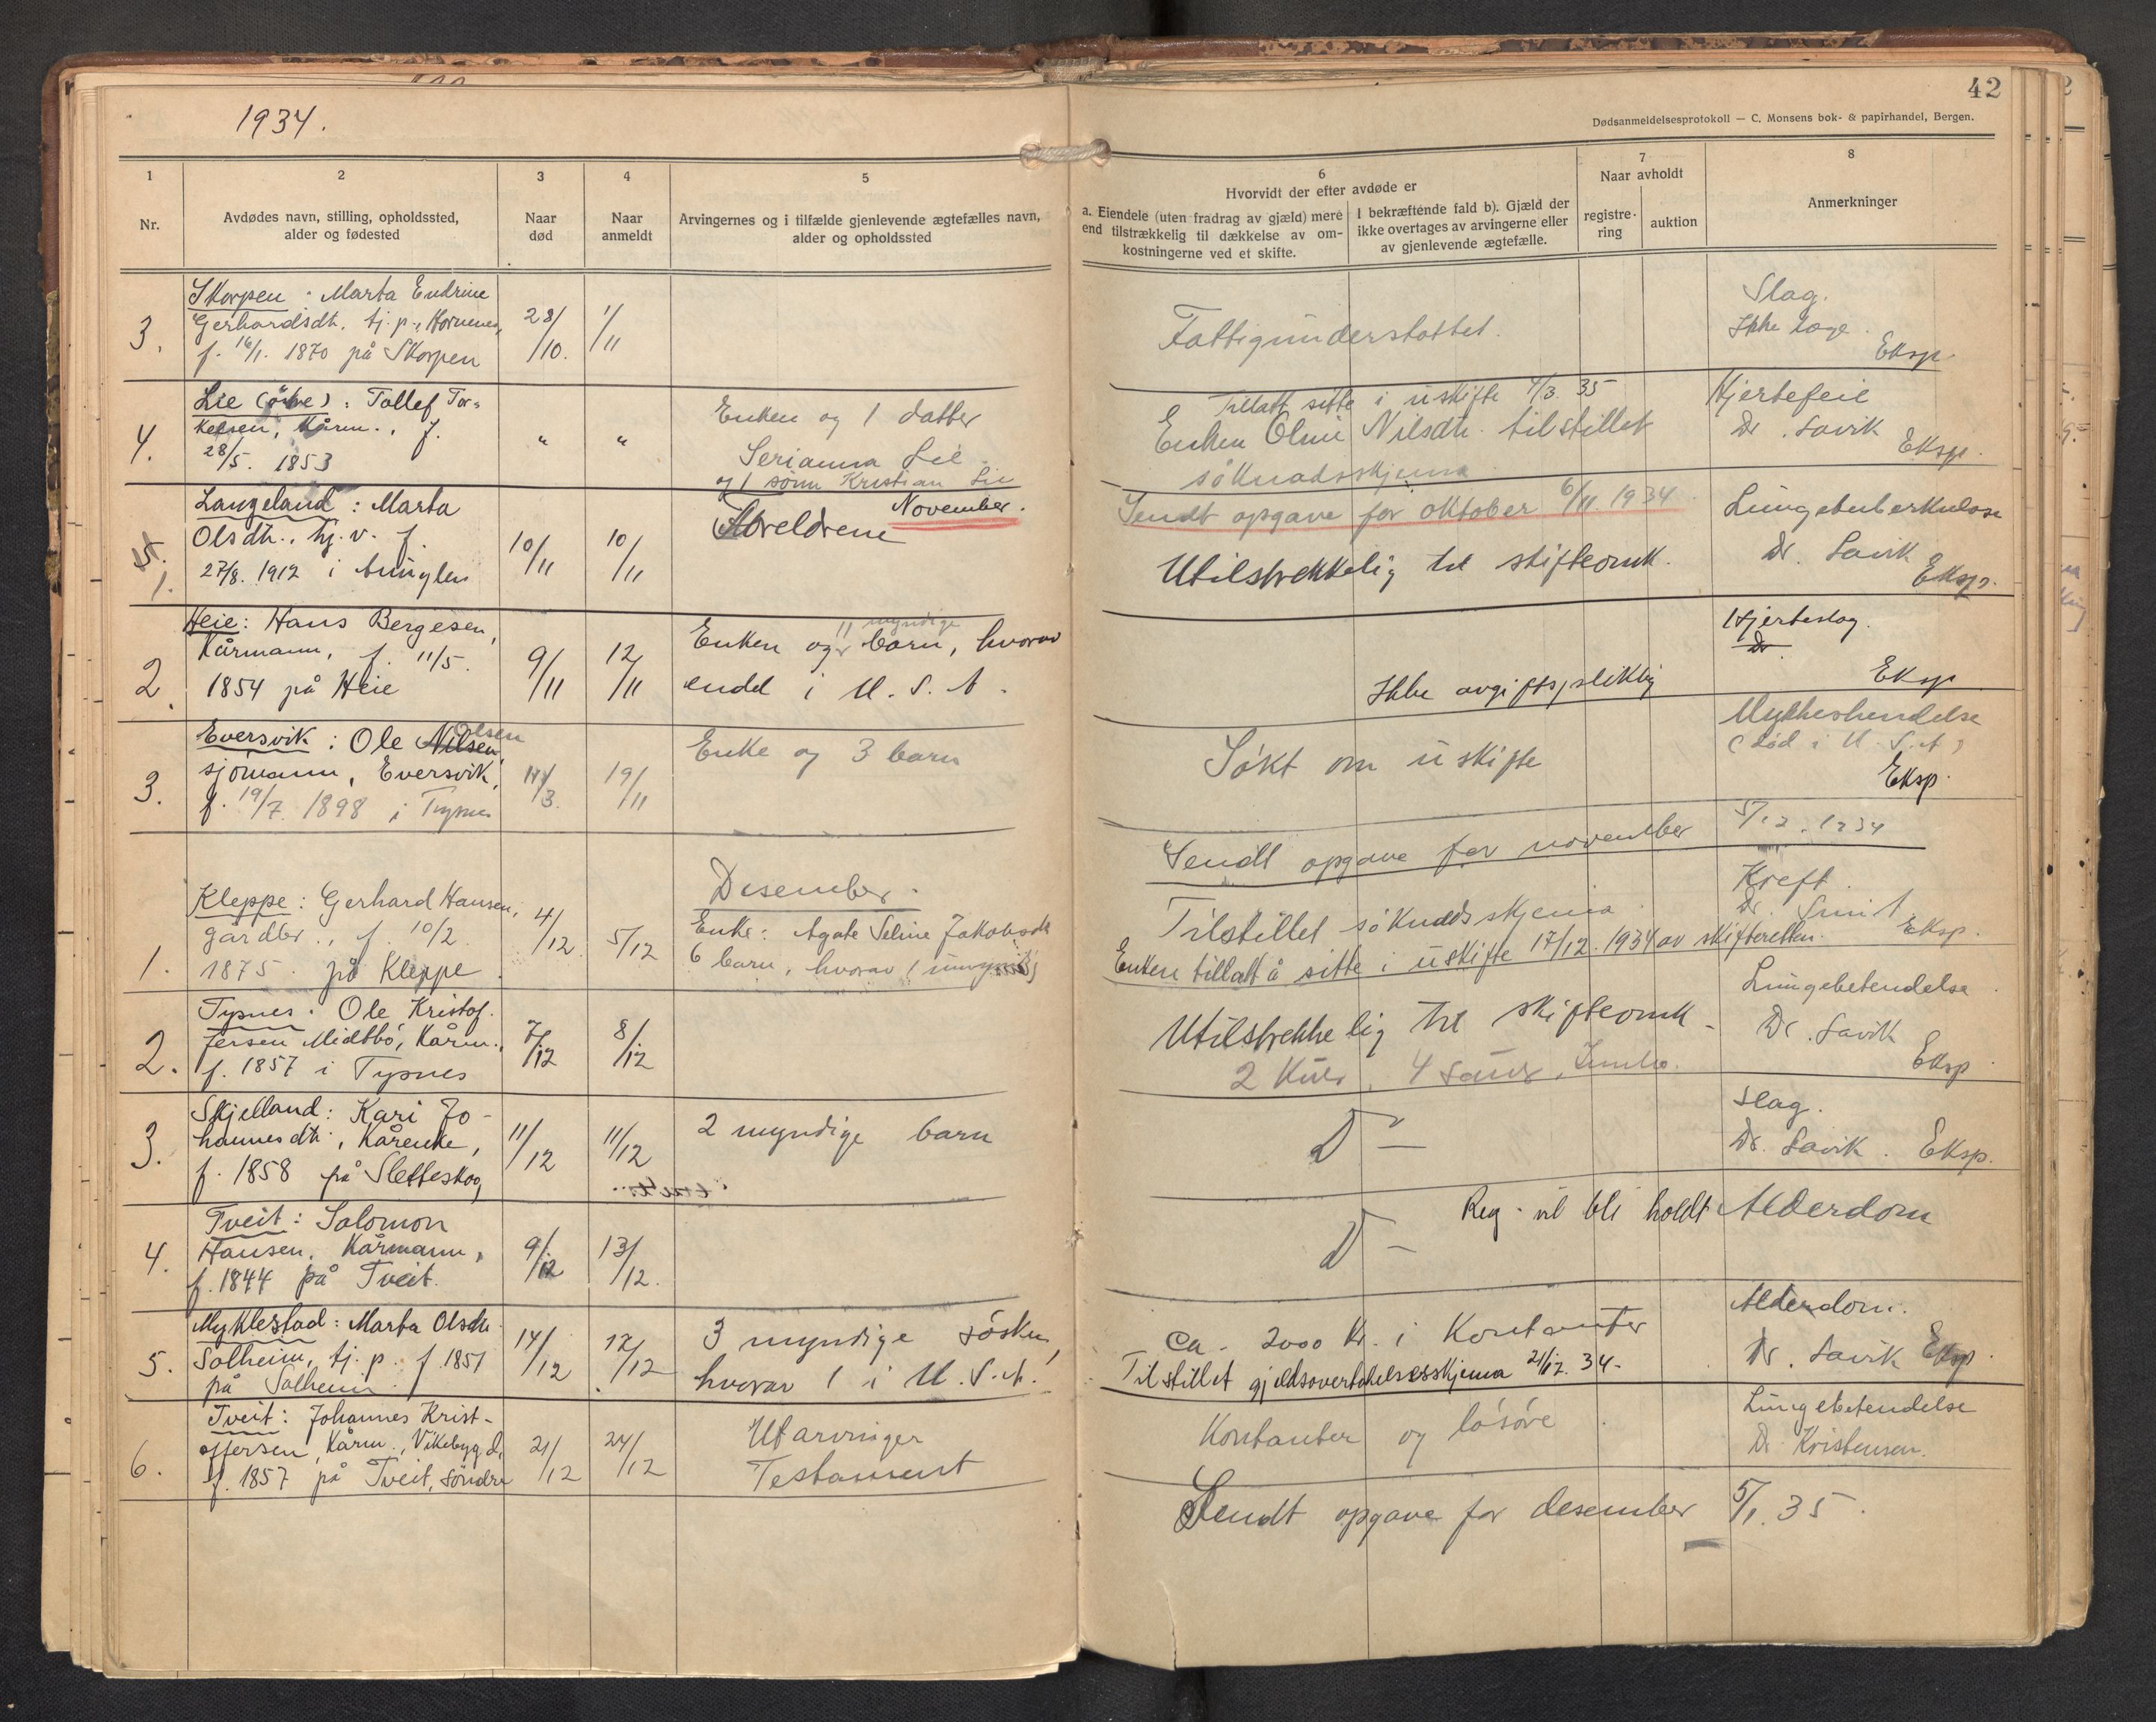 1934.
42
Dødsanmeldelsesprotokoll — C. Monsens bok- & papirhandel, Bergen.
1
2
3
4
5
6
7
8
Nr.
Avdødes navn, stilling, opholdssted,
alder og fødested
Naar
død
Naar
anmeldt
Arvingernes og i tilfælde gjenlevende ægtefælles navn,
alder og opholdssted
Hvorvidt der efter avdøde er
a. Eiendele (uten fradrag av gjæld) mere
end tilstrækkelig til dækkelse av om-
kostningerne ved et skifte.
I bekræftende fald b). Gjæld der
ikke overtages av arvingerne eller
av gjenlevende ægtefælle.
Naar avholdt
registre-
ring
auktion
Anmerkninger
3.
Skorpen : Marta Endrine
Gerhardsdt. tj. p., Hornenes,
f. 16/1. 1870 på Skorpen
28/10.
1/11
Fattigunderstøttet.
Slag.
Ikke læge.
Eksp.
4.
Lie (øvre) : Tollef Tor-
kelsen, Kårm., f.
28/5. 1853
"
"
Enken og 1 datter
Serianna Lie
og 1 sønn Kristian Lie
Tillatt sitte i uskifte 4/3. 35
Enken Oline Nilsdtr. tilstillet
søknadsskjema
Hjertefeil
Dr. Savik
Eksp.
November.
Sendt opgave for oktober 6/11. 1934.
5.
1.
Langeland : Marta
Olsdtr., hj. v. f.
27/8. 1912 i
10/11
10/11
Foreldrene
Utilstrekkelig til skifteomk.
Lungetuberkulose
Dr. Savik
Eksp.
2.
Heie : Hans Bergesen,
Kårmann, f. 11/5.
1854 på Heie
9/11
12/11
11 myndige
Enken og barn, hvorav
endel i U. S. A.
Ikke avgiftspliktig
Hjerteslag.
Dr.
Eksp
3.
Olsen
Eversvik : Ole Nilsen,
sjømann, Eversvik,
f. 19/7. 1898 i Typnes
3.
19/11
Enke og 3 barn
Søkt om uskifte
Ulykkeshendelse
(død i U. S. A)
Eksp.
Sendt opgave for november 5/12. 1934
Desember.
1.
Kleppe : Gerhard Hansen,
gårdbr., f. 10/2.
1875. på Kleppe.
4/12
5/12
Enke : Agate Seline Jakobsdt
6 barn, hvorav 1 umyndig
Tilstillet søknadsskjema.
Enken tillatt å sitte i uskifte 17/12. 1934 av skifteretten.
Kreft.
Dr. Smit
Eksp.
2.
Typnes : Ole Kristof-
fersen Midtbø, Kårm.,
f. 1857 i Typnes
7/12
8/12
Utilstrekkelig til skifteomk.
2 Kuer, 4 sauer, Innbo.
Lungebetendelse
Dr. Savik
Eksp.
3.
Skjelland : Kari Jo-
hannesdtr., Kårenke,
f. 1858 på Sletteskog
11/12
11/12
2 myndige barn
D —
Slag.
Dr. Savik. Eksp.
4.
Tveit : Salomon
Hansen. Kårmann,
f. 1844 på Tveit.
9/12
13/12.
D —
Reg. vil bli holdt
Alderdom
5.
Myklestad : Marta Olsdtr.
Solheim, tj. p. f. 1851
på Solheim.
14/12
17/12
3 myndige søsken,
hvorav 1 i U. S. A.
Ca. 2000 Kr. i Kontanter
Tilstillet gjeldsovertakelsesskjema 21/12. 34.
Alderdom.
Dr. Savik Eksp.
6.
Tveit : Johannes Krist-
offersen, Kårm., Vikebygd,
f. 1857 på Tveit, søndre
21/12
24/12
Utarvinger
Testament
Kontanter og løsøre.
Lungebetendelse
Dr. Kristensen.
Sendt opgave for desember 5/1. 35.